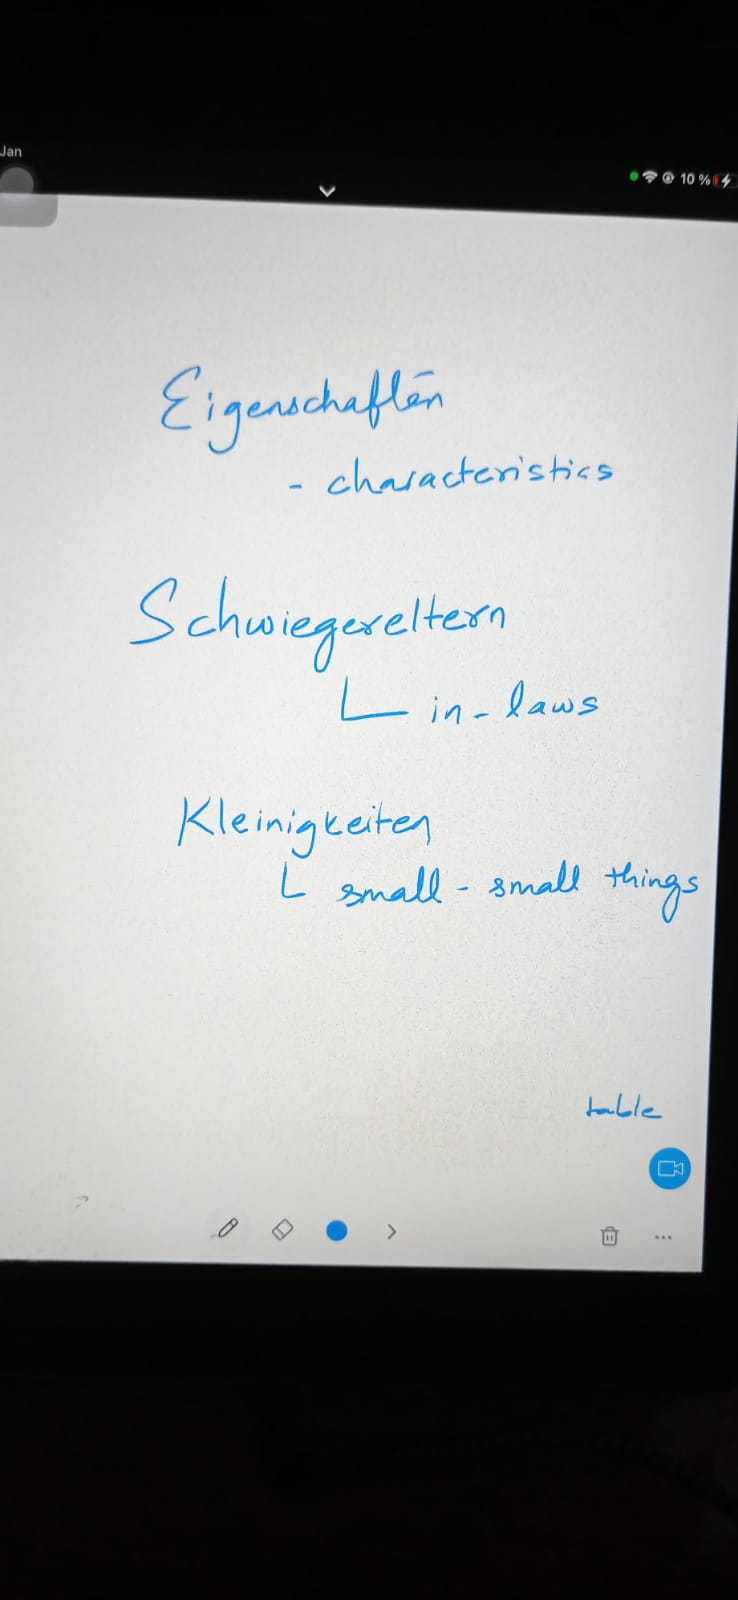 Jan
10 %
Eigenschaften
- characteristics
Schwiegereltern
in-laws
Kleinigkeiten
small - small things
table